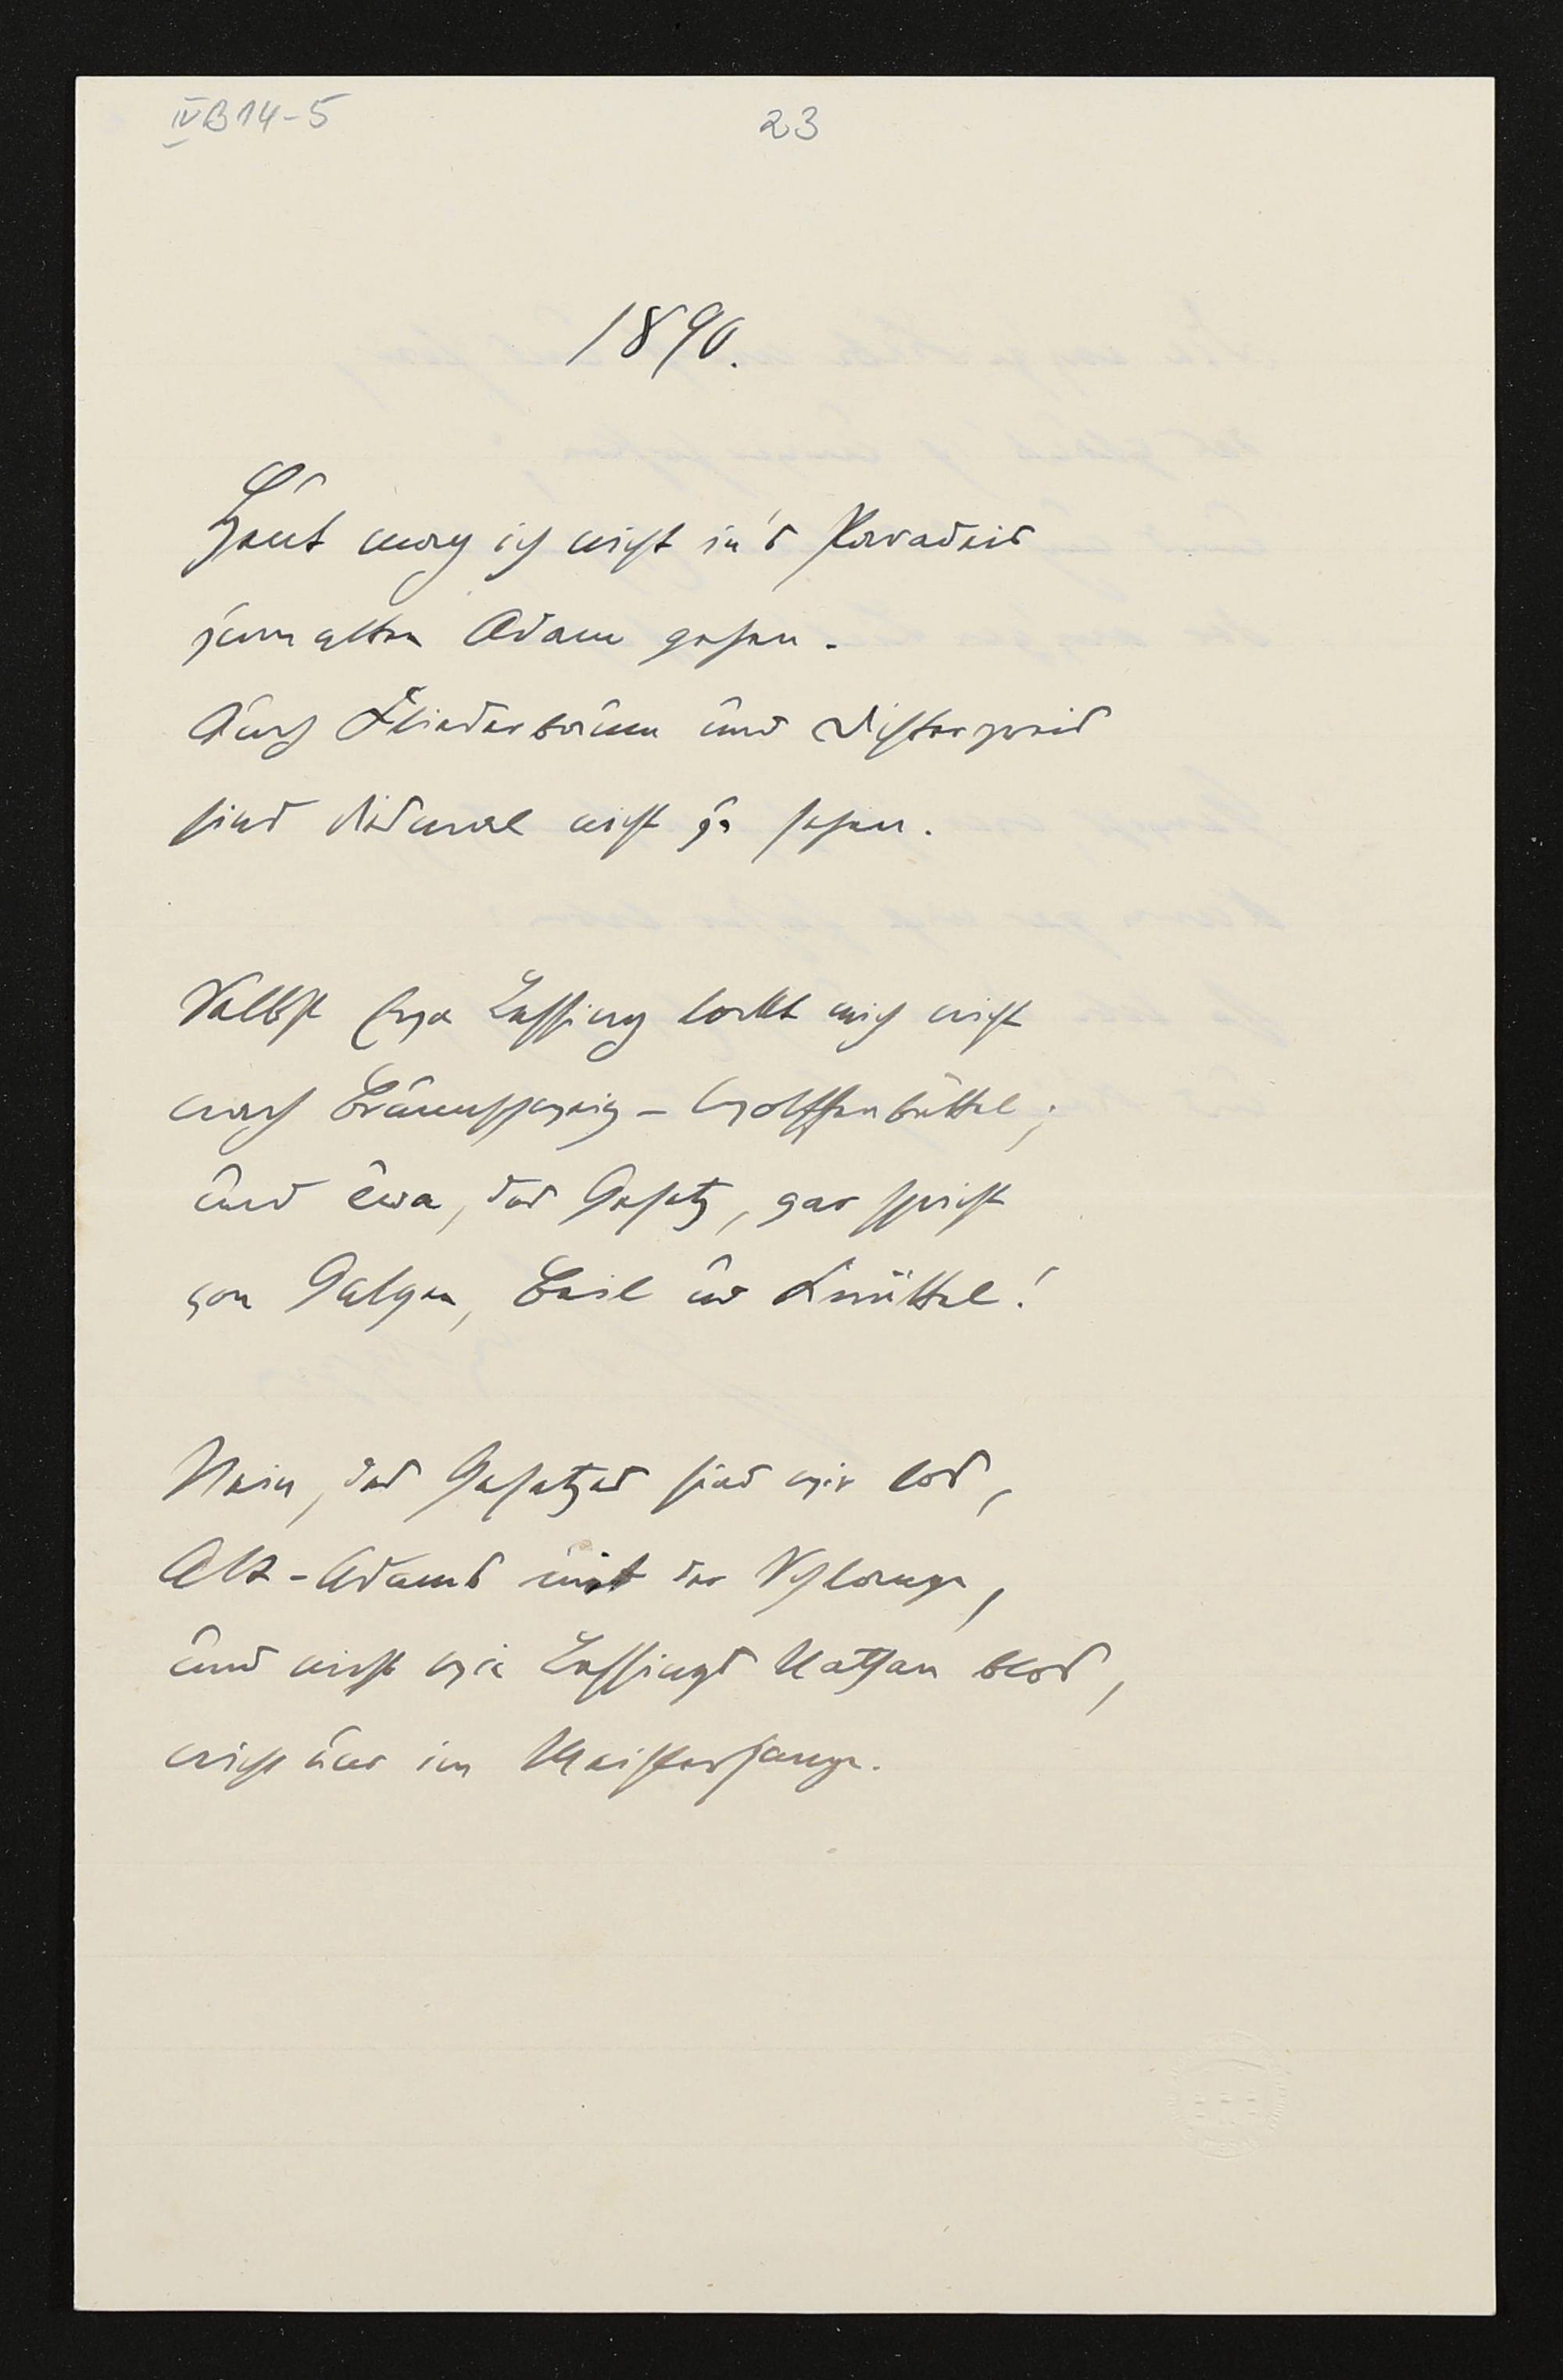 IV B 14-5
23
1890.
Heut mag ich nicht in's Paradeis
zum alten Adam gehen.
Auch Fliederbaum und Disterzweis
sind diesmal nicht zu sehen.
Selbst Eva Lessing lockt mich nicht
nach Braunschweig-Wolffenbüttel;
und êwa, das Gesetz, gar spricht
von Galgen, Beil und Knüttel!
Nein, des Gesetzes sind wir los,
Alt-Adams mit der Schlange,
und nicht wie Lessings Nathan blos,
nicht nur im Meistersange.